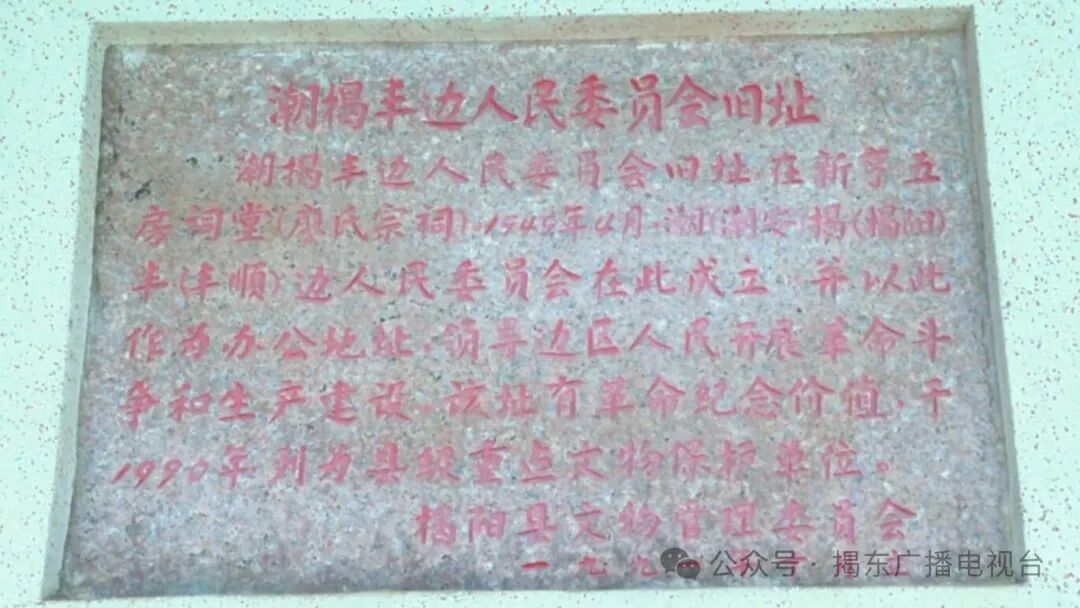 潮揭丰边人民委员会旧址
潮揭丰边人民委员会旧址,在新亨五
房祠堂(廖氏宗祠)。1949年4月,潮(潮安)揭(揭阳)
丰(丰顺)边人民委员会在此成立,并以此
作为办公地址,领导边区人民开展革命斗
争和生产建设,该址有革命纪念价值,于
1990年列为县级重点文物保护单位。
揭阳县文物管理委员会
一九九
公众号·揭东广播电视台